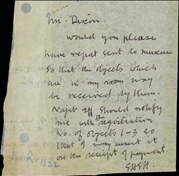 Mr. Dixon.
Would you please
have report sent to museum
so that the objects which
are in my room may
be received by them.
staff should notify
me with registration
No. of objects 1-3 so
that I may insert it
on the receipt of payment.